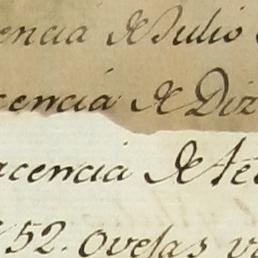 encia de Julio
cencia de Diz
acencia de fe
52. Ovejas v